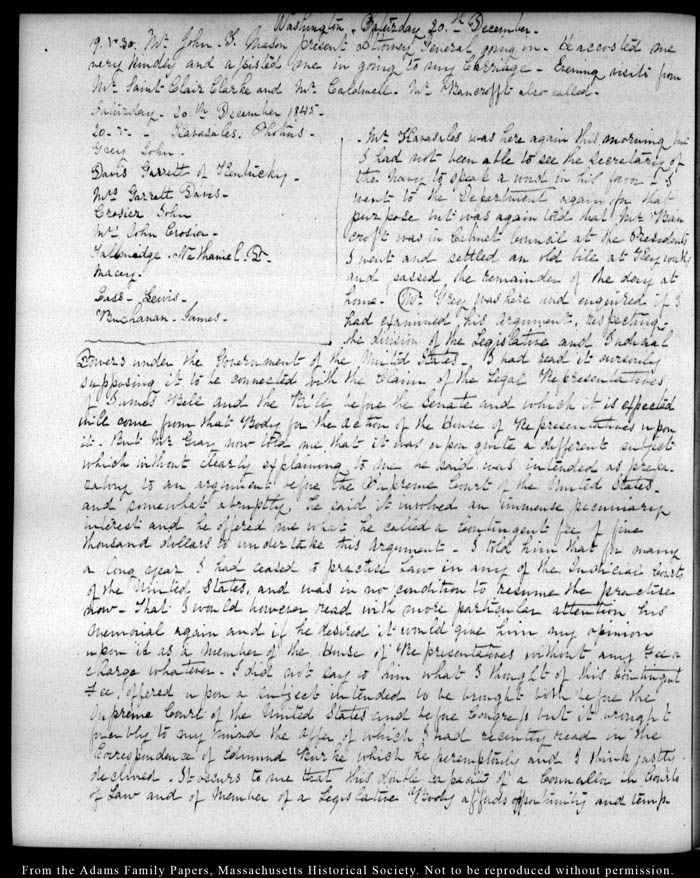 Washington. Saturday 20th December.
19. V. 30. Mr John Y. Mason present Attorney General going in. He accosted me
very kindly and assisted me in going to my Carriage - Evening visits from
Mr Saint Clair Clarke and Mr Caldwell. Mr Bancroft also called.
Saturday - 20th December 1845.
20 - V - - Karasales. Photius -
Grey John -
Davis Garrett of Kentucky -
Mrs Garrett Davis -
Crosier John
Mrs John Crosier -
Tallmadge. Nathaniel. P.
Macey.
Cass - Lewis -
Buchanan. James -
Mr Karasales was here again this morning but
I had not been able to see the Secretary of
the Navy to speak a word in his favr - I
went to the Department again for that
purpose but was again told that Mr Ban
croft was in Cabinet Council at the Presidents
I went and settled an old bill at
and passed the remainder of the day at
home - Mr Grey was here and enquired if I
had examined his argument, respecting
the division of the Legislative and Judicial
Powers under the Government of the United States - I had read it cursorily
supposing it to be connected with the Claim of the Legal Representatives
of James Bell and the Bill before the Senate and which it is expected
will come from that Body for the action of the House of Representatives upon
it. But Mr Gray now told me that it was upon quite a different subject
which without clearly explaining to me he said was intended as prepa-
ratory to an argument before the Supreme Court of the United States -
and somewhat abruptly he said it involved an immense pecuniary
interest and he offered me what he called a contingent fee of five
thousand dollars to undertake this Argument - I told him that for many
a long year I had ceased to practise Law in any of the Judicial Courts
of the United States, and was in no condition to resume the practise
now - That I would however read with more particular attention his
Memorial again and if he desired it would give him my opinion
upon it as a Member of the House of Representatives without any Fee or
charge whatever - I did not say to him what I thought of this Contingent
Fee, offered upon a subject intended to be brought both before the
Supreme Court of the United States and before Congress but it brought
forcibly to my mind the offer of which I had recently read in the
Correspondence of Edmund Burke which he peremptorily and I think justly
declined - It occurs to me that this double capacity of a Councellor in Courts
of Law and of Member of a Legislative Body affords opportunity and temp-
From the Adams Family Papers, Massachusetts Historical Society. Not to be reproduced without permission.